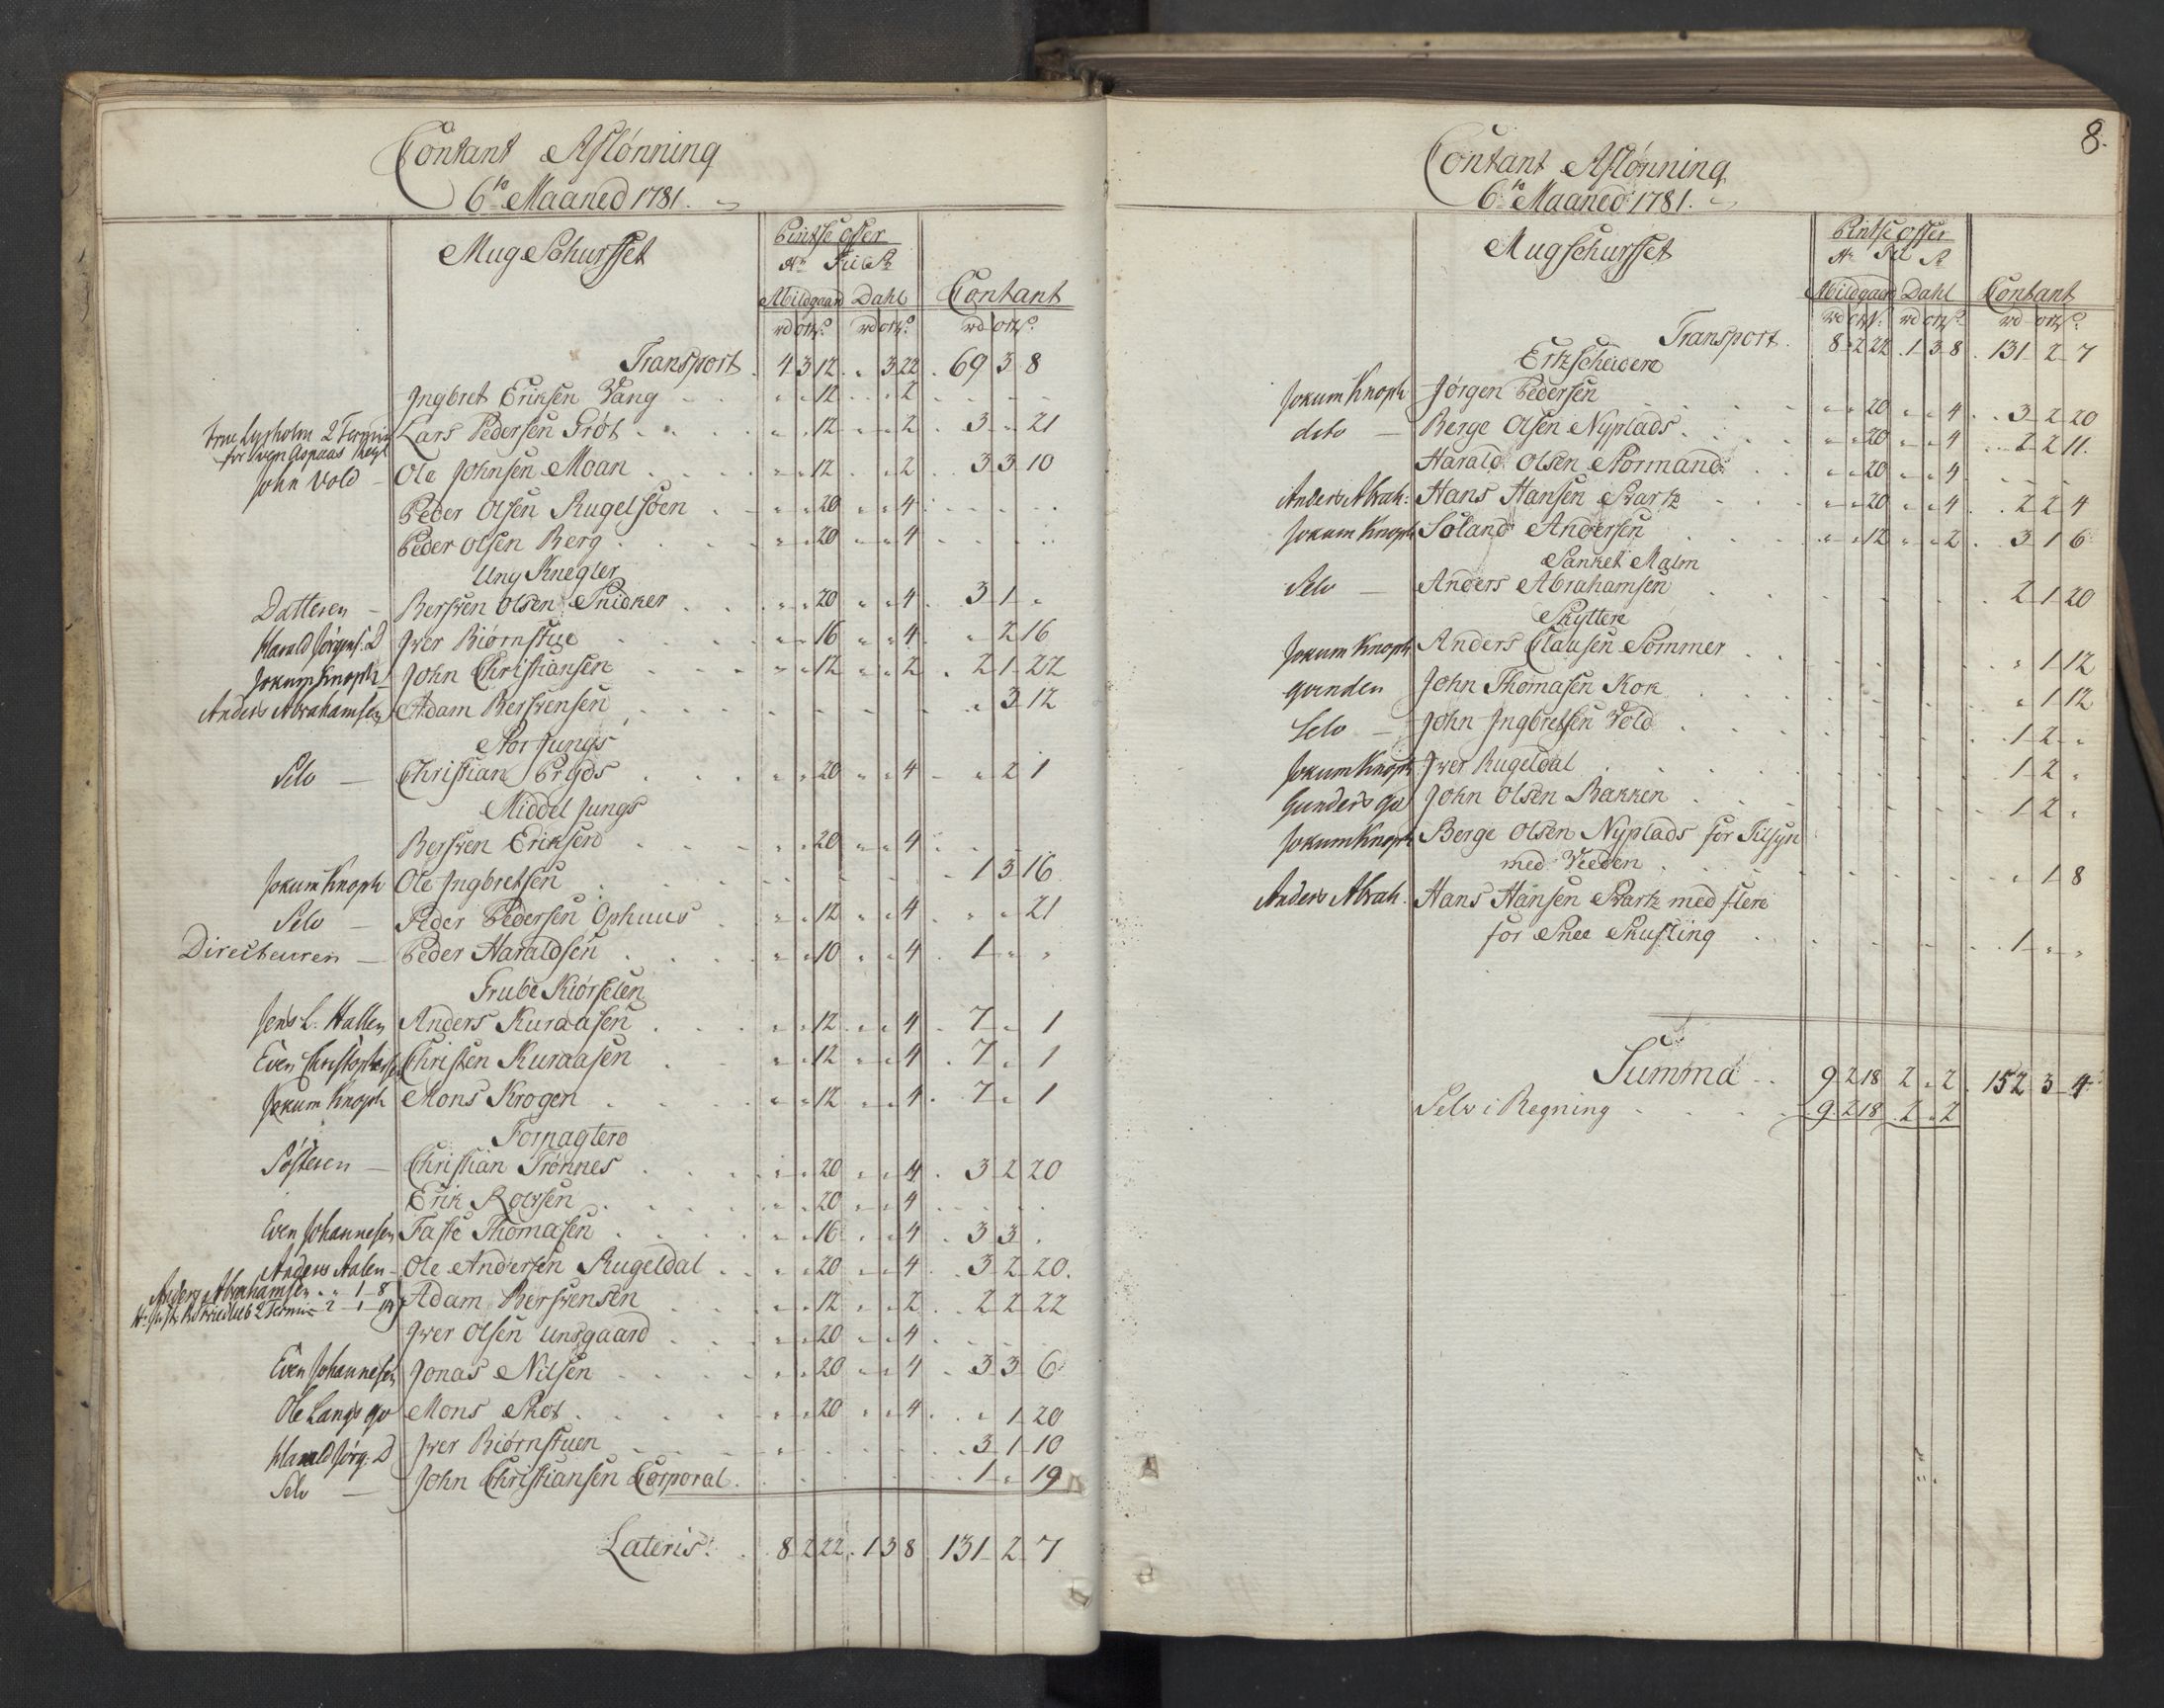 Contant Aflønning
6te Maaned 1781.
Mug Schursset
Pintse offer
Hr
Abildgaard Dahl Contant
rd ort s. rd ort s. rd ort s.
Transport 4 3 12 . „ 3 22 . 69 3 8
Ingbret Eriksen Vang „ „ 12 „ „ 2
2 Termin
Lars Pedersen Grøt „ „ 12 „ „ 2 . 3 „ 21
for
John Vold – Ole Johnsen Moan „ „ 12 „ „ 2 . 3 3 10
Peder Olsen Rugelsøen „ „ 20 „ „ 4
Peder Olsen Berg „ „ 20 „ „ 4
Ung Knegter
Datteren – Bersven Olsen Snidker „ „ 20 „ „ 4 . 3 1 „
Harald Jørgens. D Iver Biørnstue „ „ 16 „ „ 4 . „ 2 16
Jokum Knoph – John Christiansen „ „ 12 „ „ 2 . 2 1 22
Anders Abrahamsen Adam Bersvensen „ 3 12
Stor Jungs
Selv – Christian Bryds „ „ 20 „ „ 4 – „ 2 1
Middel Jungs
Bersven Eriksen „ „ 20 „ „ 4
Jokum Knoph Ole Ingbretsen 1 3 16
Selv – Peder Pedersen Ophuus „ „ 12 „ „ 4 . „ „ 21
Directeuren – Peder Haraldsen „ „ 10 „ „ 4 . 1 „ „
Grube Kiørselen
Jens L. Hallen Anders Kuraasen „ „ 12 „ „ 4 . 7 „ 1
Even Christophersen Christen Kuraasen „ „ 12 „ „ 4 . 7 „ 1
Jokum Knoph Mons Krogen „ „ 12 „ „ 4 . 7 „ 1
Forvagtere
Søsteren – Christian Trønnes „ „ 20 „ „ 4 . 3 2 20
Erik Rolvsen „ „ 20 „ „ 4
Even Johannesen Faste Thomasen „ „ 16 „ „ 4 . 3 3 .
Anders Aalen – Ole Andersen Rugeldal „ „ 20 „ „ 4 . 3 2 20.
Anders Abrahamsen . „ 1 8
2 Termin 2 1
Adam Bersvensen „ „ 12 „ „ 2 . 2 2 22
Iver Olsen Unsgaard „ „ 20 „ „ 4
Even Johannesen Jonas Nilsen „ „ 20 „ „ 4 . 3 3 6
Ole Langs qv Mons Skot „ „ 20 „ „ 4 . „ 1 20
Harald Jørg: D Iver Biørnstuen . 3 1 10
Selv – John Christiansen Corporal . 1 „ 19
Lateris: 8 2 22 . 1 3 8 . 131 2 7
8.
Contant Aflønning
6te Maaned 1781.
Mugschursset
Pintse offer
Hr
Abildgaard Dahl Contant
rd ort s. rd ort s. rd ort s.
Transport . 8 2 22 . 1 3 8 . 131 2 7
Ertzscheidere
Jokum Knoph Jørgen Pedersen „ „ 20 „ „ 4 . 3 2 20
dito – Berge Olsen Nyplads „ „ 20 „ „ 4 . 2 2 11.
Harald Olsen Normand „ „ 20 „ „ 4
Anders Abrah: Hans Hansen Svartz „ „ 20 „ „ 4 . 2 2 4
Jokum Knoph Søland Andersen „ „ 12 „ „ 2 . 3 1 6
Sanket Malm
Selv – Anders Abrahamsen 2 1 20
Skyttere
Jokum Knoph Anders Clausen Sommer „ 1 12
qvinden John Thomasen Kok „ 1 12
Selv – John Ingbretsen Vold 1 2 „
Jokum Knoph Iver Rugeldal 1 2 „
Gunders qv John Olsen Bakken 1 2 „
Jokum Knoph Berge Olsen Nyplads for Tilsyn
med Veeden „ 1 8
Anders Abrah. Hans Hansen Svartz med flere
for Snee Skufling 1 „ „
Summa 9 2 18 2 „ 2 . 152 3 4
Selv i Regning 9 2 18 2 „ 2